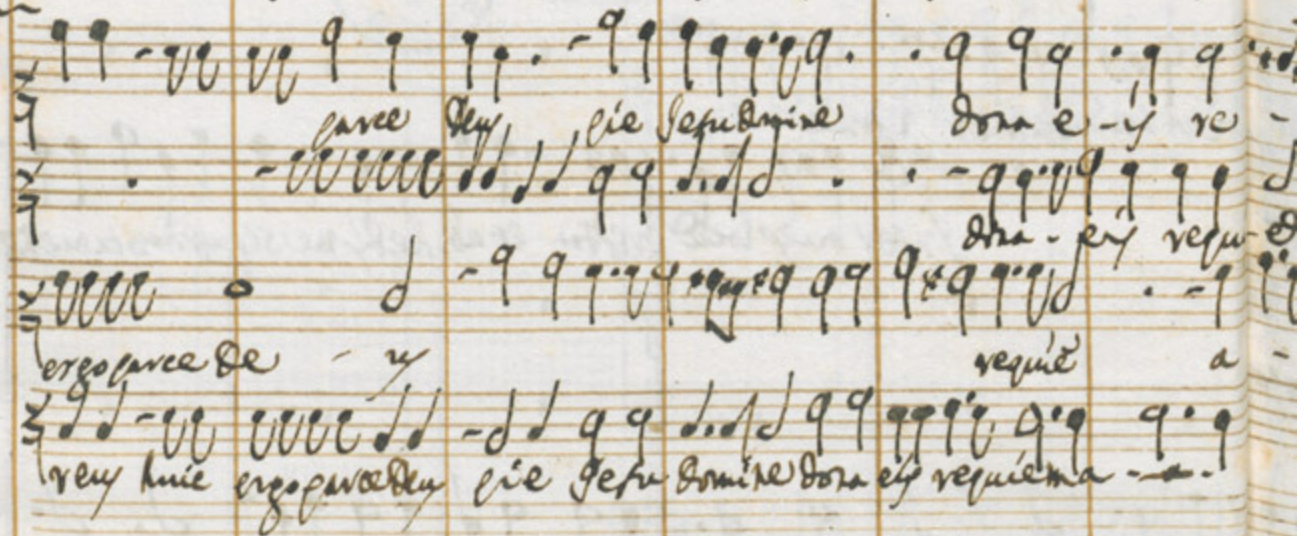 parce deus pie Jesu domine dona e - is re -
dona - eis requi-
ergo parce De - us requiē a -
reus huic ergo parce Deus pie Jesu domine dona eis requiem a - a -